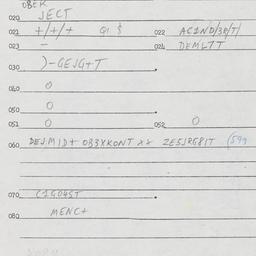 020 JECT
021 +/+/+ QI $ 022 ACIND/3R/T/
023 - 024 DEML7T
030 )-GEJG+T
040 0
050 0
051 0 052 0
060 DEJMID+ OB3XKONT X+ ZE5JRG8IT (599
070 C1504ST
080 MENC+